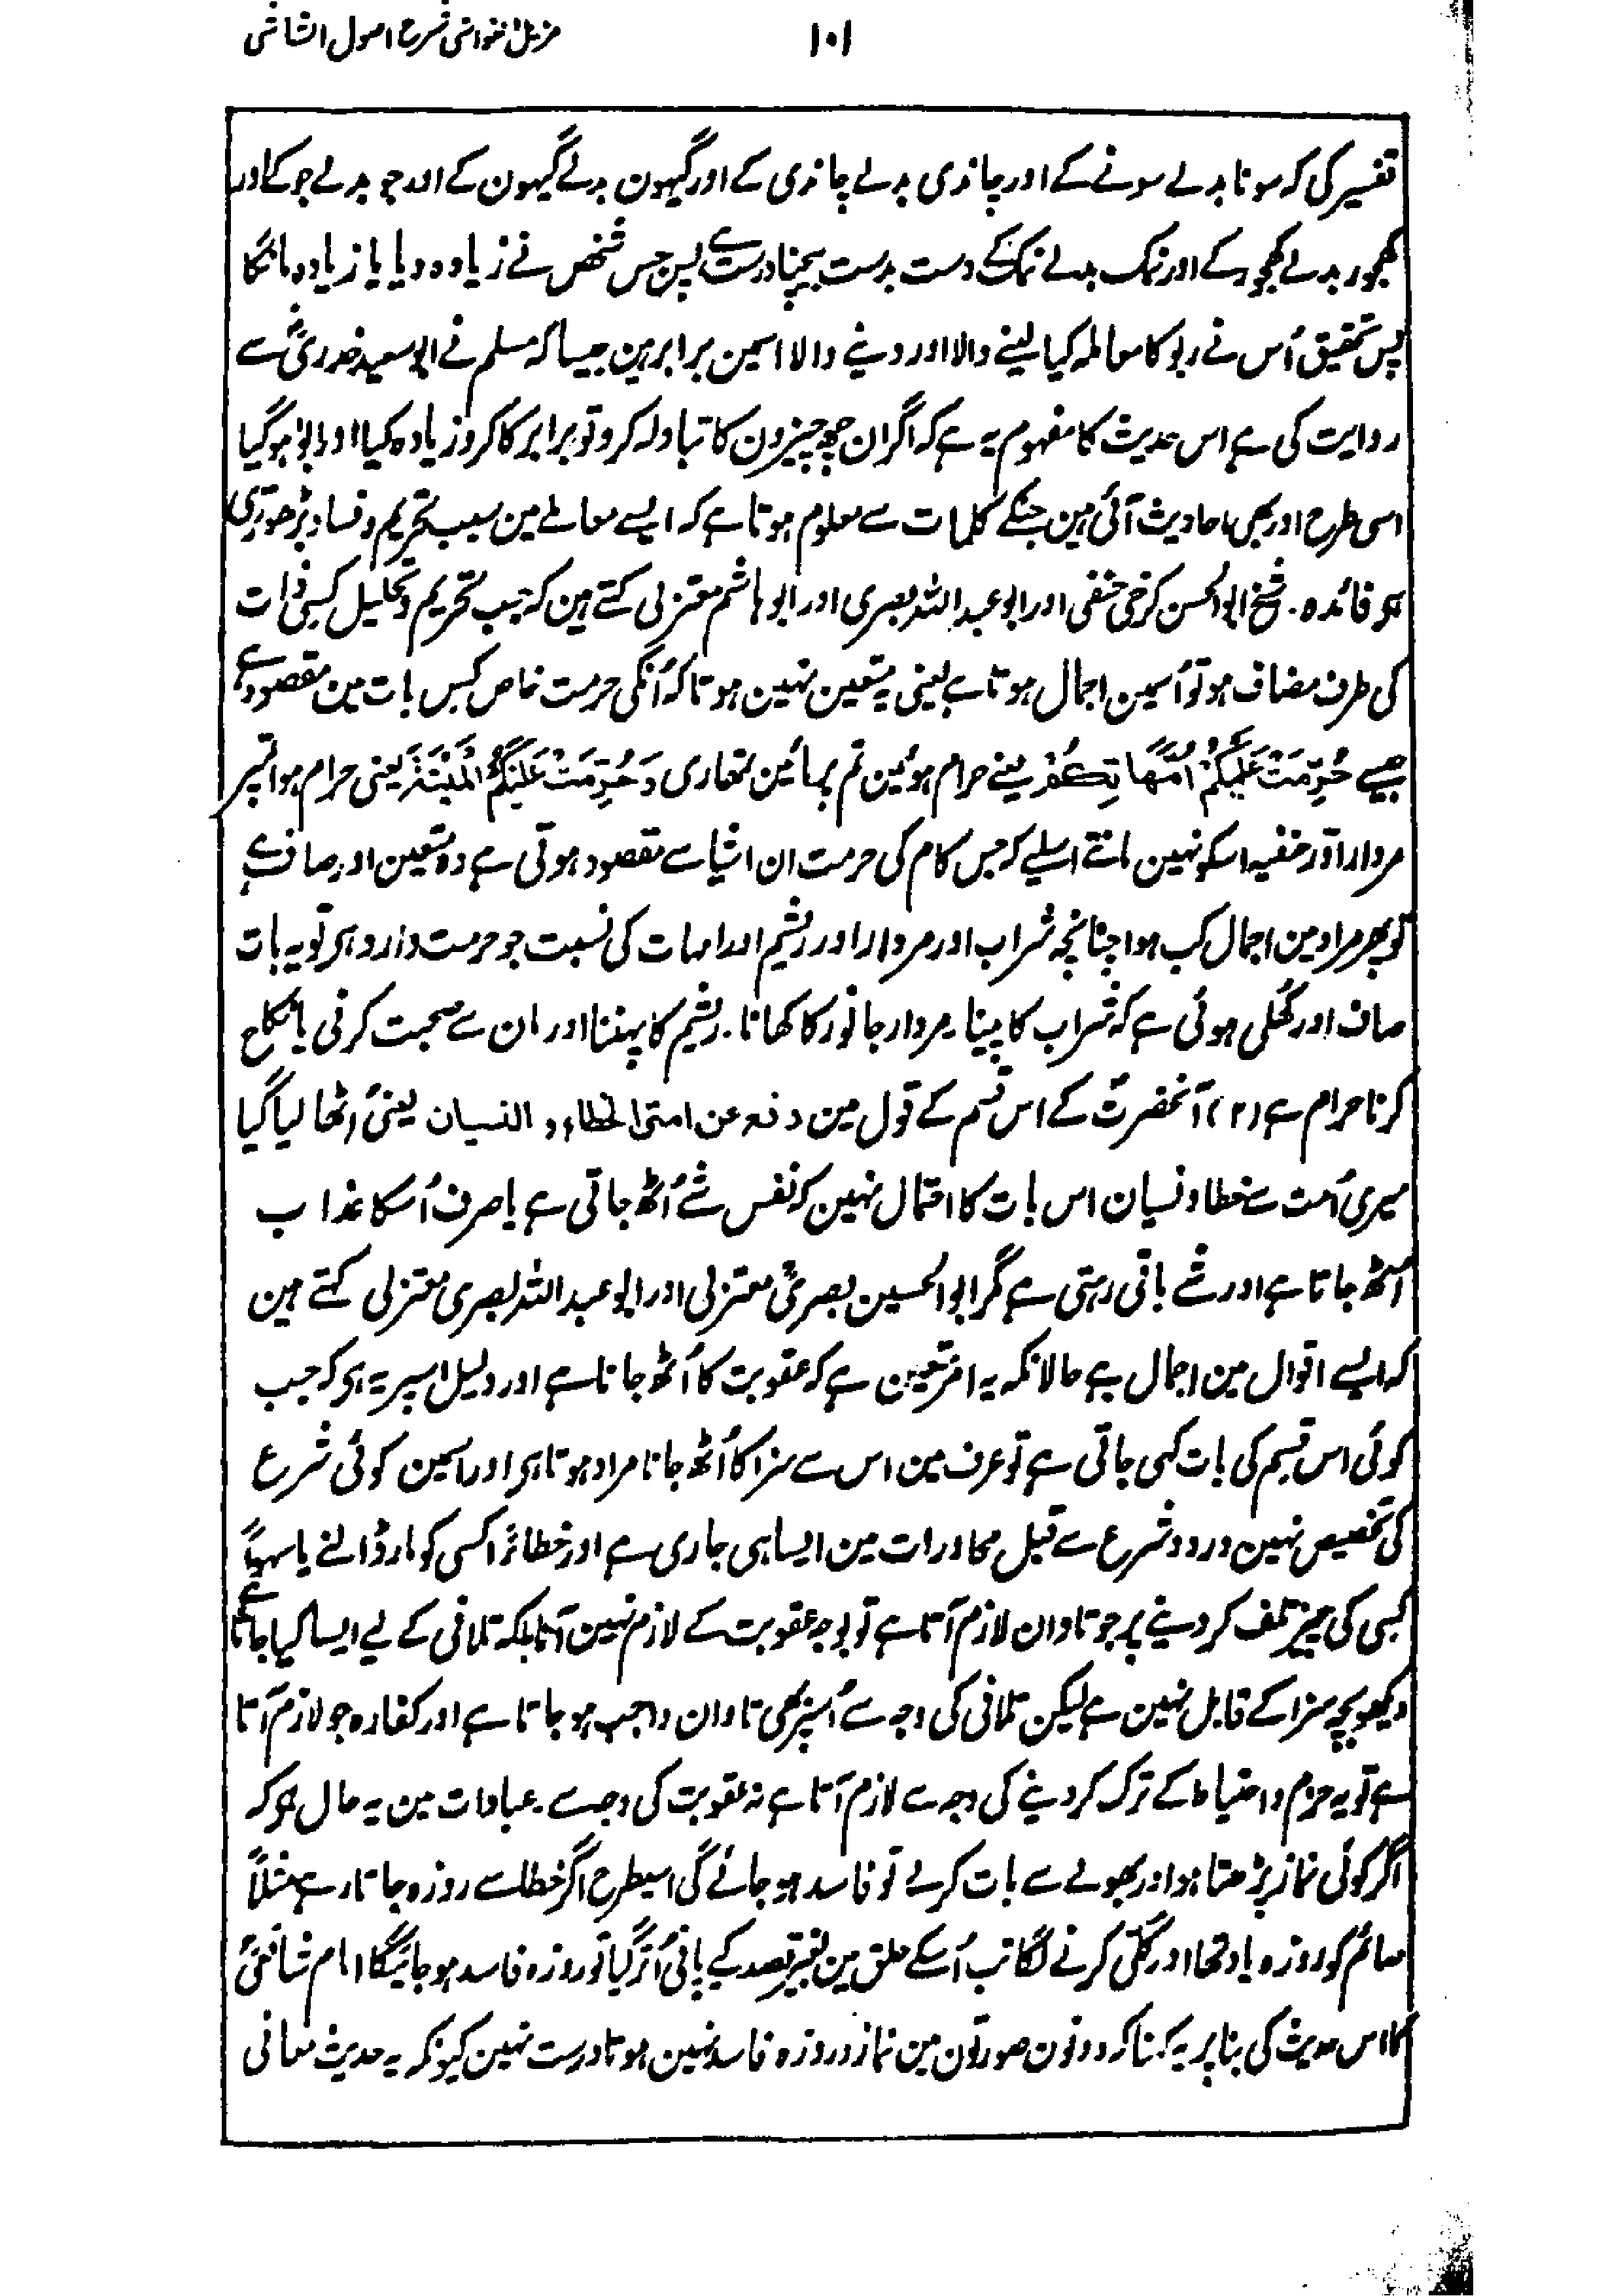 ۱۰۱ مزیل الغواشی شرح اصول الشاشی
تفسیر کی کہ سونا بدلے سونے کے اور چاندی بدلے چاندی کے اور گیہون بدلے گیہون کے اور جو بدلے جو کے اور
کھجور بدلے کھجور کے اور نمک بدلے نمک کے دست بدست بیچنا درست ہے پس جس شخص نے زیادہ دیا یا زیادہ مانگا
پس تحقیق اُس نے ربو کا معاملہ کیا لینے والا اور دینے والا اسمین برابر ہین جیسا کہ مسلم نے ابو سعید خدریؓ سے
روایت کی ہے اس حدیث کا مفہوم یہ ہے کہ اگر ان چھ چیزون کا تبادلہ کرو تو برابر کا کرو زیادہ کیا اور ربوٰ ہو گیا
اسی طرح اور بھی احادیث آئی ہین جنکے کلمات سے معلوم ہوتا ہے کہ ایسے معاملے مین سبب تحریم و فساد بڑھوتری
ہو فائدہ۔ شیخ ابو الحسن کرخی حنفی اور ابو عبد اللہ بصری اور ابو ہاشم معتزلی کہتے ہین کہ جب تحریم و تحلیل کسی ذات
کی طرف مضاف ہو تو اُسمین اجمال ہوتا ہے یعنی یہ متعین نہین ہوتا کہ اُنکی حرمت خاص کس بات مین مقصود ہے
جیسے حُرِّمَتْ عَلَيْكُمْ اُمَّهَاتُكُمْ یعنے حرام ہوئین تم پر مائین تمھاری وَحُرِّمَتْ عَلَيْكُمُ الْمَيْتَةُ یعنی حرام ہوا تمپر
مردار اور حنفیہ اسکو نہین مانتے اسلیے کہ جس کام کی حرمت ان اشیا سے مقصود ہوتی ہے وہ متعین اور صاف ہے
تو پھر مراد مین اجمال کب ہوا چنانچہ شراب اور مردار اور ریشم اور امہات کی نسبت جو حرمت وارد ہی تو یہ بات
صاف اور کھلی ہوئی ہے کہ شراب کا پینا۔ مردار جانور کا کھانا۔ ریشم کا پہننا اور مان سے صحبت کرنی یا نکاح
کرنا حرام ہے (۲) آنحضرتؐ کے اس قسم کے قول مین رفع عن امتی الخطاء و النسیان یعنی اُٹھا لیا گیا
میری اُمت سے خطا و نسیان اس بات کا احتمال نہین کہ نفس شے اُٹھ جاتی ہے یا صرف اُسکا عذاب
اُٹھ جاتا ہے اور شے باقی رہتی ہے مگر ابو الحسین بصری معتزلی اور ابو عبد اللہ بصری معتزلی کہتے ہین
کہ ایسے اقوال مین اجمال ہے حالانکہ یہ امر متعین ہے کہ عقوبت کا اُٹھ جانا ہے اور دلیل اسپر یہ ہی کہ جب
کوئی اس قسم کی بات کہی جاتی ہے تو عرف مین اس سے سزا کا اُٹھ جانا مراد ہوتا ہی اور اسمین کوئی شرع
کی تخصیص نہین ورود شرع سے قبل محاورات مین ایسا ہی جاری ہے اور خطاءً کسی کو مار ڈالنے یا سہواً
کسی کی چیز تلف کر دینے پر جو تاوان لازم آتا ہے تو بوجہ عقوبت کے لازم نہین آتا بلکہ تلافی کے لیے ایسا کیا جاتا ہے
دیکھو بچہ سزا کے قابل نہین ہے لیکن تلافی کی وجہ سے اُسپر بھی تاوان واجب ہو جاتا ہے اور کفارہ جو لازم آتا
ہے تو یہ حزم و احتیاط کے ترک کر دینے کی وجہ سے لازم آتا ہے نہ عقوبت کی وجہ سے۔ عبادات مین یہ حال ہو کہ
اگر کوئی نماز پڑھتا ہو اور بھولے سے بات کر لے تو فاسد ہو جائے گی اسیطرح اگر خطا سے روزہ جاتا رہے مثلاً
صائم کو روزہ یاد تھا اور کلی کرنے لگا تب اُسکے حلق مین بغیر قصد کے پانی اُتر گیا تو روزہ فاسد ہو جائیگا امام شافعیؒ
کا اس حدیث کی بنا پر یہ کہنا کہ دونون صورتون مین نماز و روزہ فاسد نہین ہوتا درست نہین کیونکہ یہ حدیث معانی